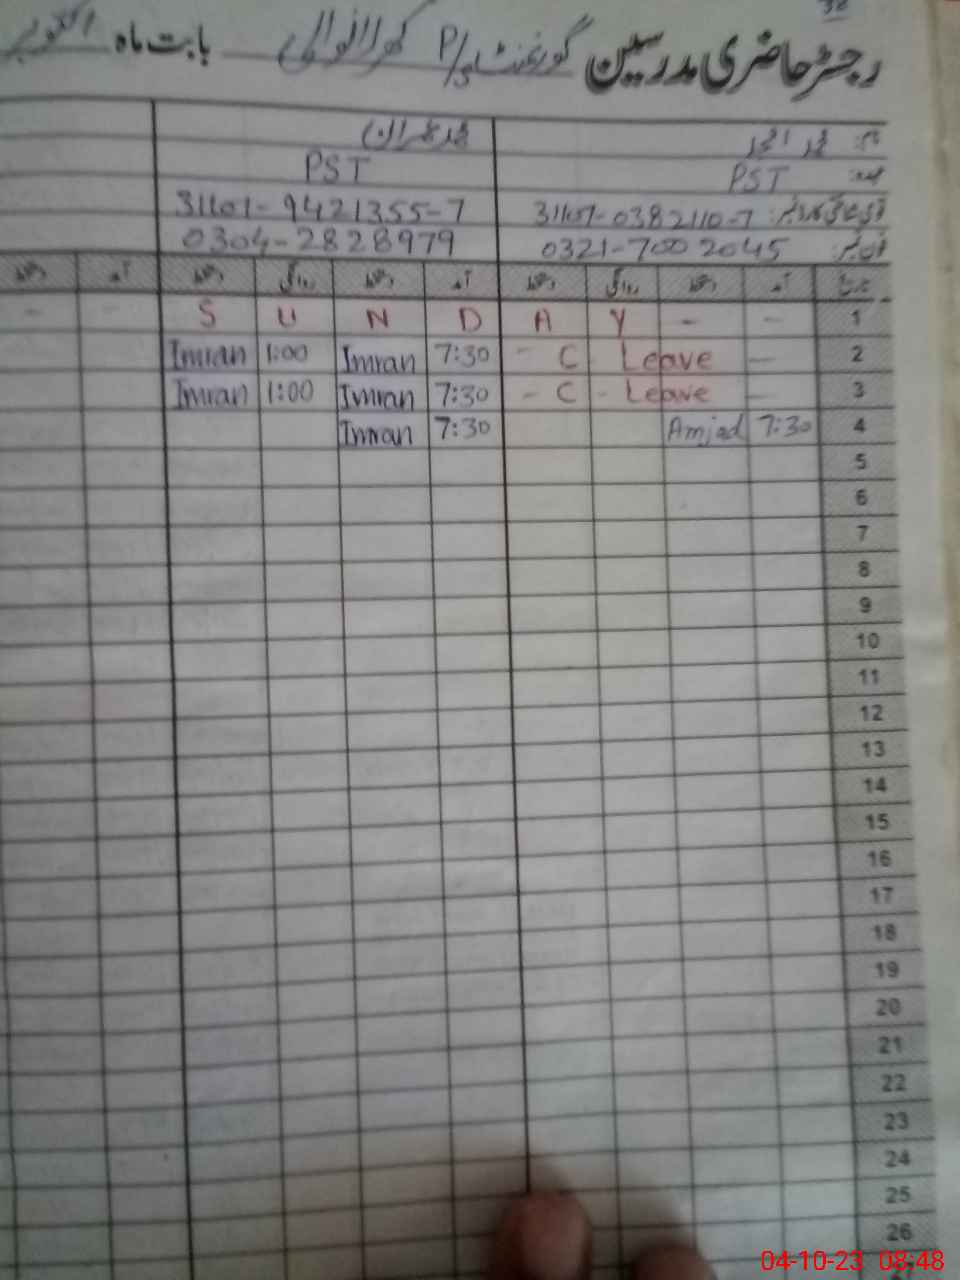 38
رجسٹر حاضری مدرسین گورنمنٹ P/S بابت ماہ اکتوبر
نام: محمد امجد محمد عمران
عہدہ: PST PST
قومی شناختی کارڈ نمبر: 31107-0382110-7 31101-9421355-7
فون نمبر: 0321-7002045 0304-2828979
تاریخ آمد دستخط روانگی دستخط آمد دستخط روانگی دستخط آمد دستخط
1 - - Y A D N U S - -
2 — Leave C - 7:30 Imran 1:00 Imran
3 — Leave - C - 7:30 Imran 1:00 Imran
4 7:30 Amjad 7:30 Imran
5
6
7
8
9
10
11
12
13
14
15
16
17
18
19
20
21
22
23
24
25
26
04-10-23 08:48